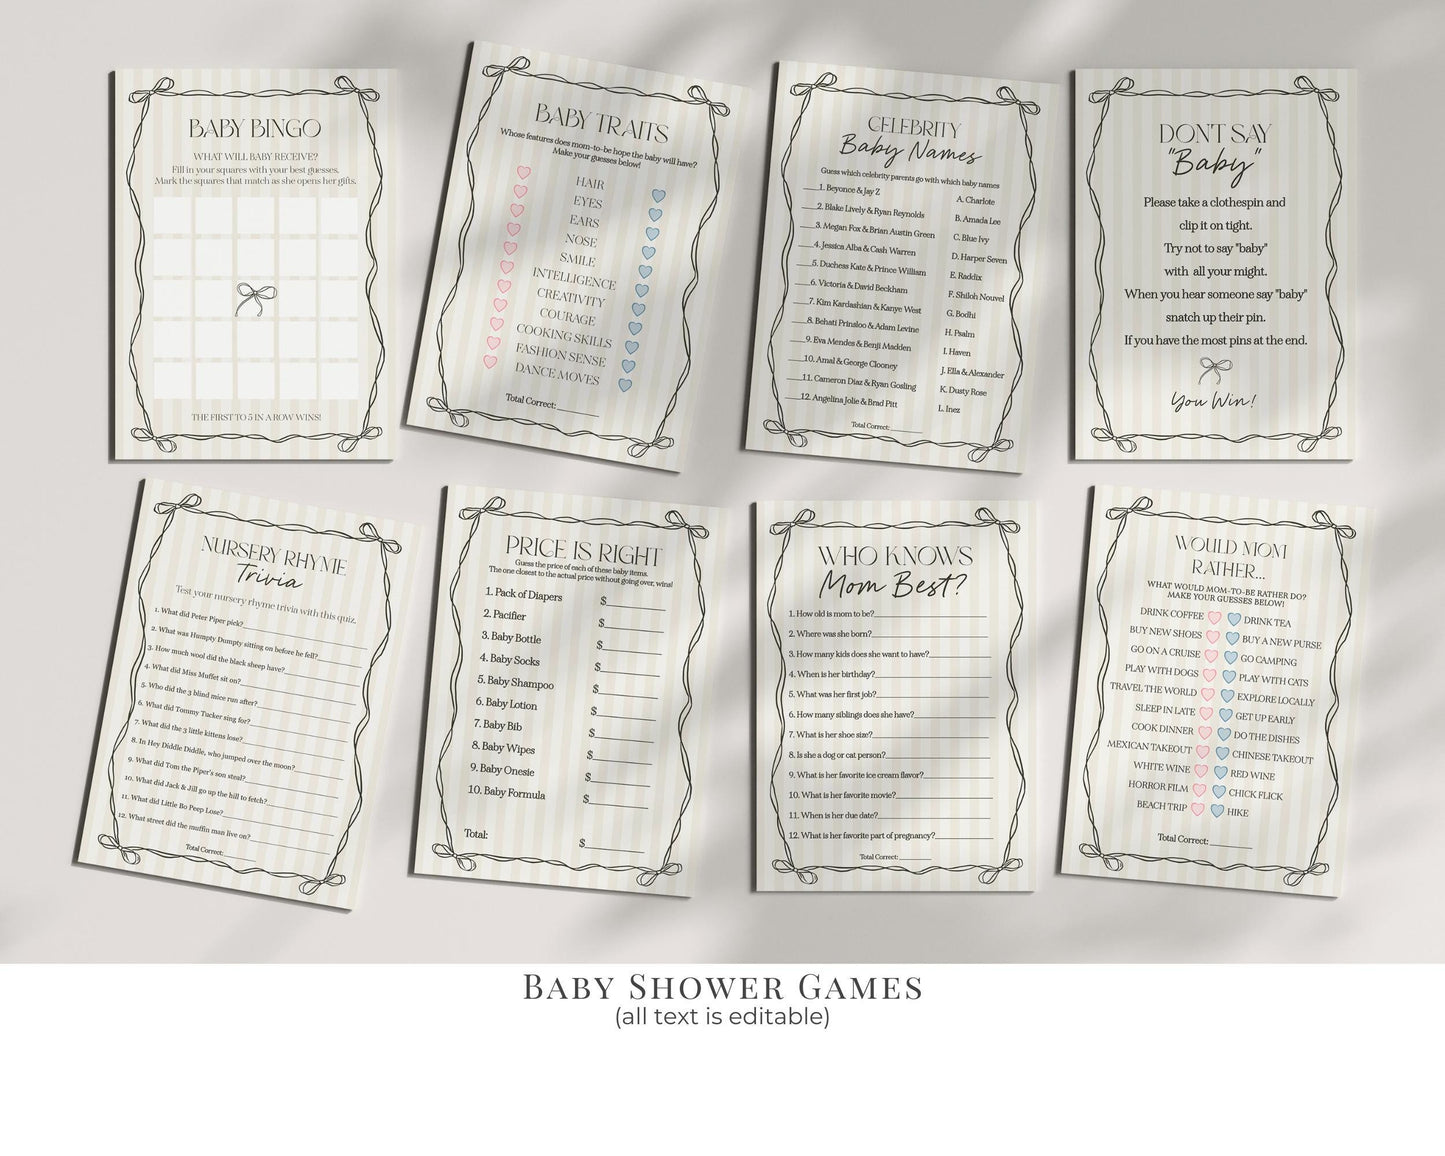 BABY BINGO
WHAT WILL BABY RECEIVE?
Fill in your squares with your best guesses.
Mark the squares that match as she opens her gifts.
THE FIRST TO 5 IN A ROW WINS!
BABY TRAITS
Whose features does mom-to-be hope the baby will have?
Make your guesses below!
HAIR
EYES
EARS
NOSE
SMILE
INTELLIGENCE
CREATIVITY
COURAGE
COOKING SKILLS
FASHION SENSE
DANCE MOVES
Total Correct:________
CELEBRITY
Baby Names
Guess which celebrity parents go with which baby names
____1. Beyonce & Jay Z
____2. Blake Lively & Ryan Reynolds
____3. Megan Fox & Brian Austin Green
____4. Jessica Alba & Cash Warren
____5. Duchess Kate & Prince William
____6. Victoria & David Beckham
____7. Kim Kardashian & Kanye West
____8. Behati Prinaloo & Adam Levine
____9. Eva Mendes & Benji Madden
____10. Amal & George Clooney
____11. Cameron Diaz & Ryan Gosling
____12. Angelina Jolie & Brad Pitt
A. Charlote
B. Amada Lee
C. Blue Ivy
D. Harper Seven
E. Raddix
F. Shiloh Nouvel
G. Bodhi
H. Psalm
I. Haven
J. Ella & Alexander
K. Dusty Rose
L. Inez
Total Correct:________
DON'T SAY
"Baby"
Please take a clothespin and
clip it on tight.
Try not to say "baby"
with all your might.
When you hear someone say "baby"
snatch up their pin.
If you have the most pins at the end.
You Win!
NURSERY RHYME
Trivia
Test your nursery rhyme trivia with this quiz.
1. What did Peter Piper pick?
2. What was Humpty Dumpty sitting on before he fell?
3. How much wool did the black sheep have?
4. What did Miss Muffet sit on?
5. Who did the 3 blind mice run after?
6. What did Tommy Tucker sing for?
7. What did the 3 little kittens lose?
8. In Hey Diddle Diddle, who jumped over the moon?
9. What did Tom the Piper's son steal?
10. What did Jack & Jill go up the hill to fetch?
11. What did Little Bo Peep Lose?
12. What street did the muffin man live on?
Total Correct:________
PRICE IS RIGHT
Guess the price of each of these baby items.
The one closest to the actual price without going over, wins!
1. Pack of Diapers $________
2. Pacifier $________
3. Baby Bottle $________
4. Baby Socks $________
5. Baby Shampoo $________
6. Baby Lotion $________
7. Baby Bib $________
8. Baby Wipes $________
9. Baby Onesie $________
10. Baby Formula $________
Total: $________
WHO KNOWS
Mom Best?
1. How old is mom to be?
2. Where was she born?
3. How many kids does she want to have?
4. When is her birthday?
5. What was her first job?
6. How many siblings does she have?
7. What is her shoe size?
8. Is she a dog or cat person?
9. What is her favorite ice cream flavor?
10. What is her favorite movie?
11. When is her due date?
12. What is her favorite part of pregnancy?
Total Correct:________
WOULD MOM
RATHER...
WHAT WOULD MOM-TO-BE RATHER DO?
MAKE YOUR GUESSES BELOW!
DRINK COFFEE DRINK TEA
BUY NEW SHOES BUY A NEW PURSE
GO ON A CRUISE GO CAMPING
PLAY WITH DOGS PLAY WITH CATS
TRAVEL THE WORLD EXPLORE LOCALLY
SLEEP IN LATE GET UP EARLY
COOK DINNER DO THE DISHES
MEXICAN TAKEOUT CHINESE TAKEOUT
WHITE WINE RED WINE
HORROR FILM CHICK FLICK
BEACH TRIP HIKE
Total Correct:________
BABY SHOWER GAMES
(all text is editable)